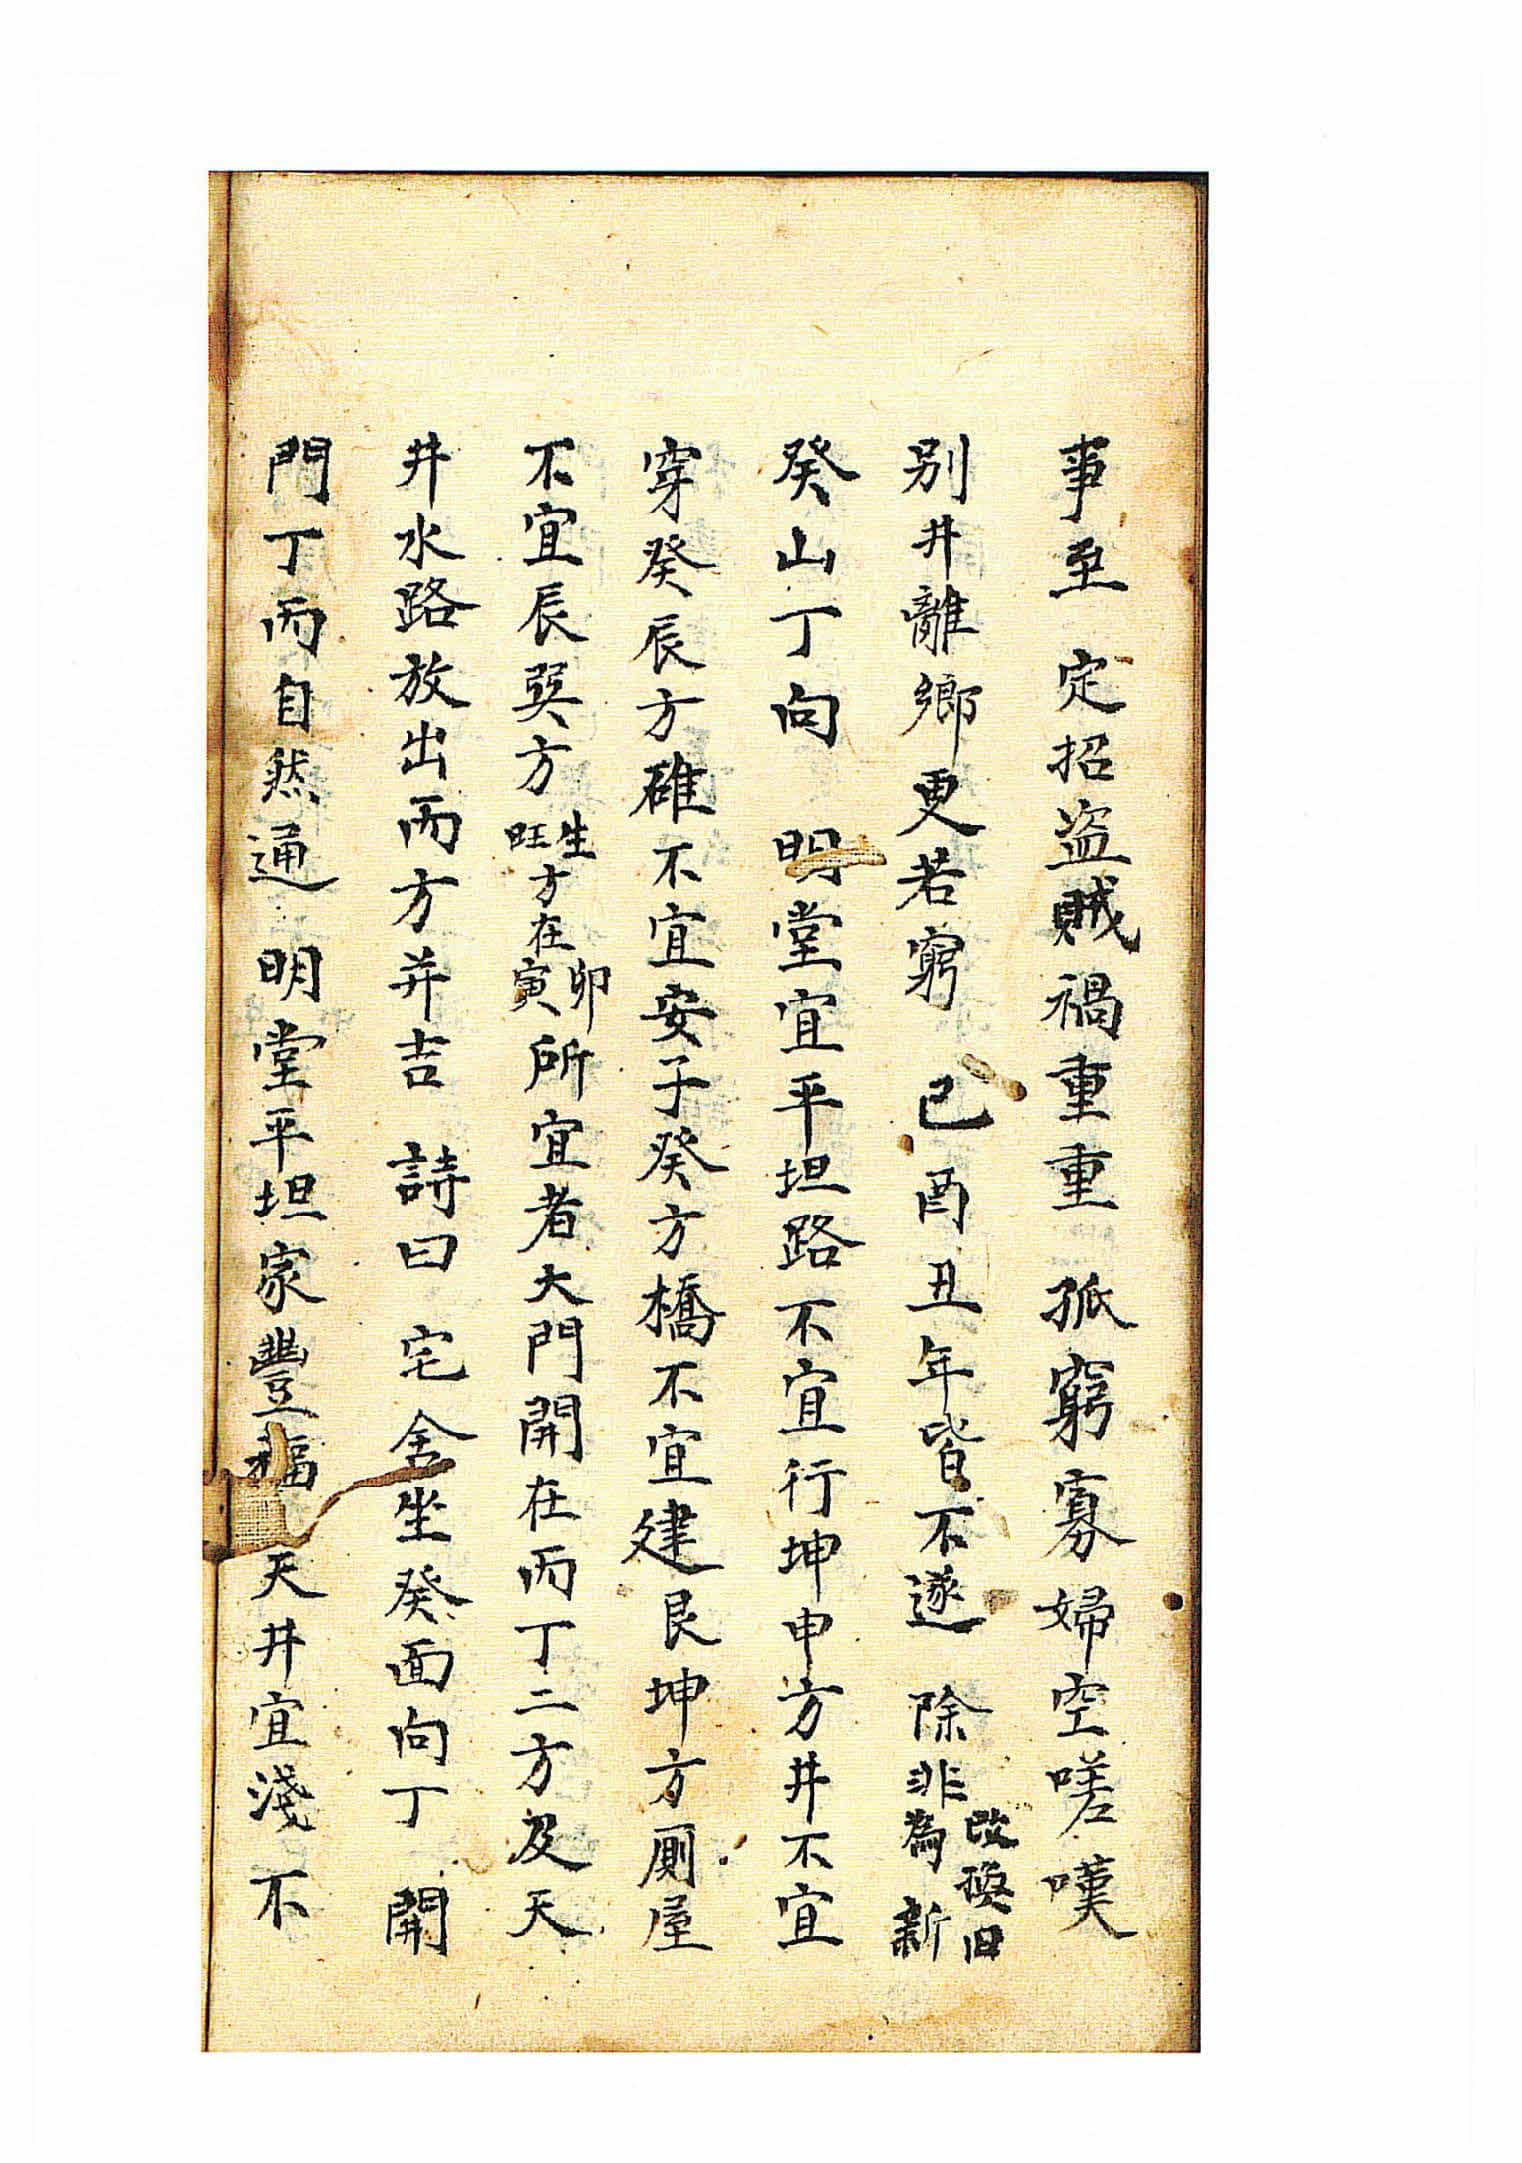 事至 定招盗賊禍重重 孤窮寡婦空嗟嘆
别井離鄉更若窮 己酉丑年皆不遂 除非改換旧為新
癸山丁向 明堂宜平坦路不宜行坤申方井不宜
穿癸辰方碓不宜安子癸方橋不宜建艮坤方厠屋
不宜辰巽方生旺方在卯寅所宜者大門開在丙丁二方及天
井水路放出丙方并吉 詩曰 宅舍坐癸面向丁 開
門丁丙自然通 明堂平坦家豐福 天井宜淺不